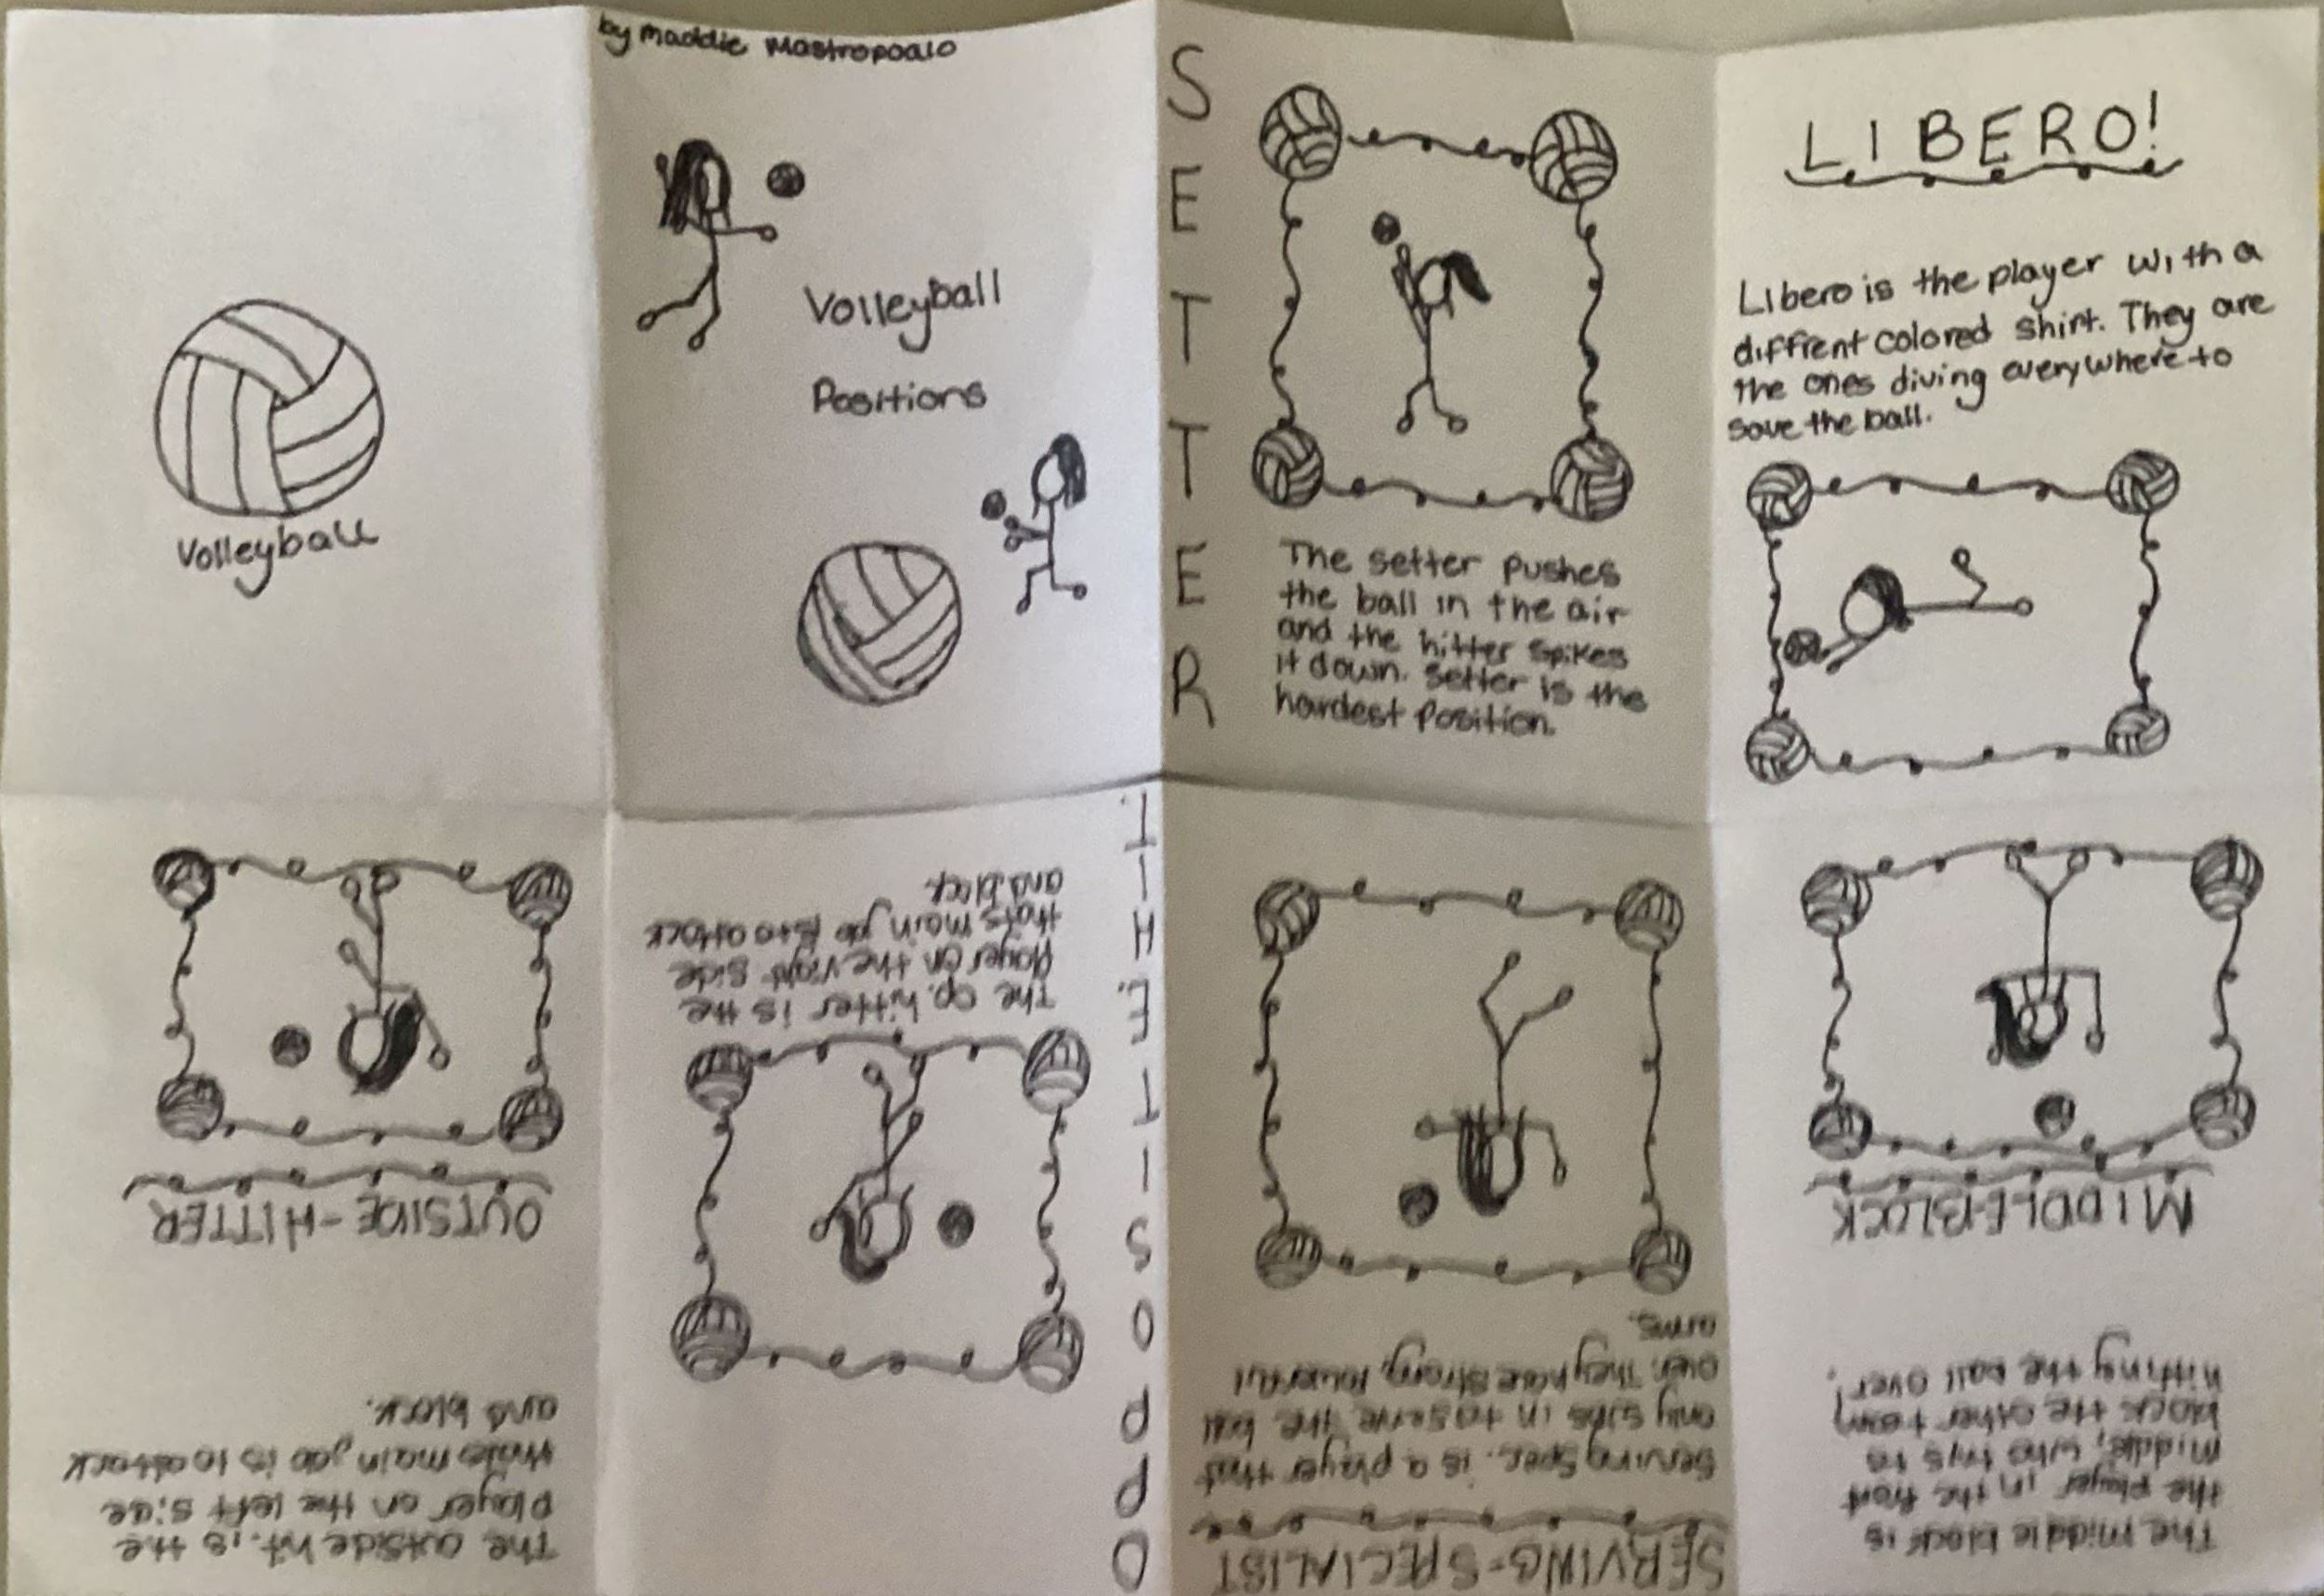 Volleyball
by Maddie Mastropoalo
Volleyball
Positions
SETTER
The setter pushes
the ball in the air
and the hitter spikes
it down. Setter is the
hardest position.
LIBERO!
Libero is the player with a
diffrent colored shirt. They are
the ones diving everywhere to
save the ball.
MIDDLE-BLOCK
The middle block is
the player in the front
middle, who trys to
block the other team
hitting the ball over.
SERVING-SPECIALIST
Serving spec. is a player that
only subs in to serve the ball
over. They have strong, powerful
arms.
OPPOSITE. HIT.
The op. hitter is the
player on the right side
thats main job is to attack
and block.
OUTSIDE-HITTER
The outside hit. is the
player on the left side
thats main job is to attack
and block.